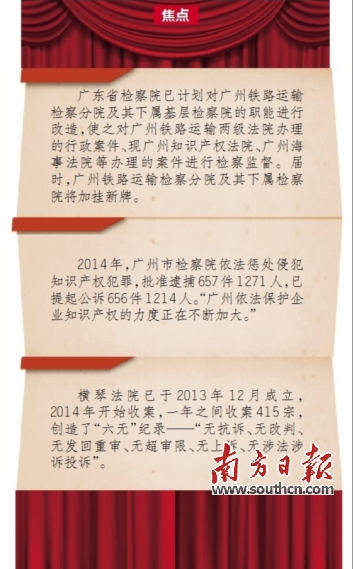 焦点
广东省检察院已计划对广州铁路运输
检察分院及其下属基层检察院的职能进行
改造，使之对广州铁路运输两级法院办理
的行政案件、现广州知识产权法院、广州海
事法院等办理的案件进行检察监督。届
时，广州铁路运输检察分院及其下属检察
院将加挂新牌。
2014年，广州市检察院依法惩处侵犯
知识产权犯罪，批准逮捕657件1271人，已
提起公诉656件1214人。“广州依法保护企
业知识产权的力度正在不断加大。”
横琴法院已于2013年12月成立，
2014年开始收案，一年之间收案415宗，
创造了“六无”纪录——“无抗诉、无改判、
无发回重审、无超审限、无上诉、无涉法涉
诉投诉”。
南方日报
www.southcn.com